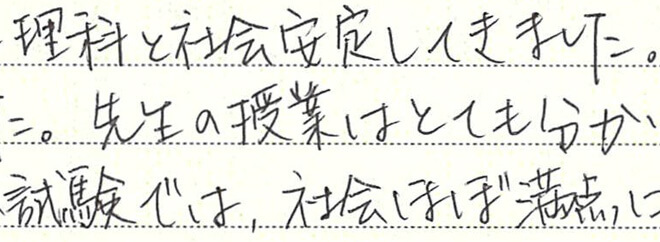 理科と社会安定してきました。
た。先生の授業はとても分か
試験では,社会ほぼ満点に